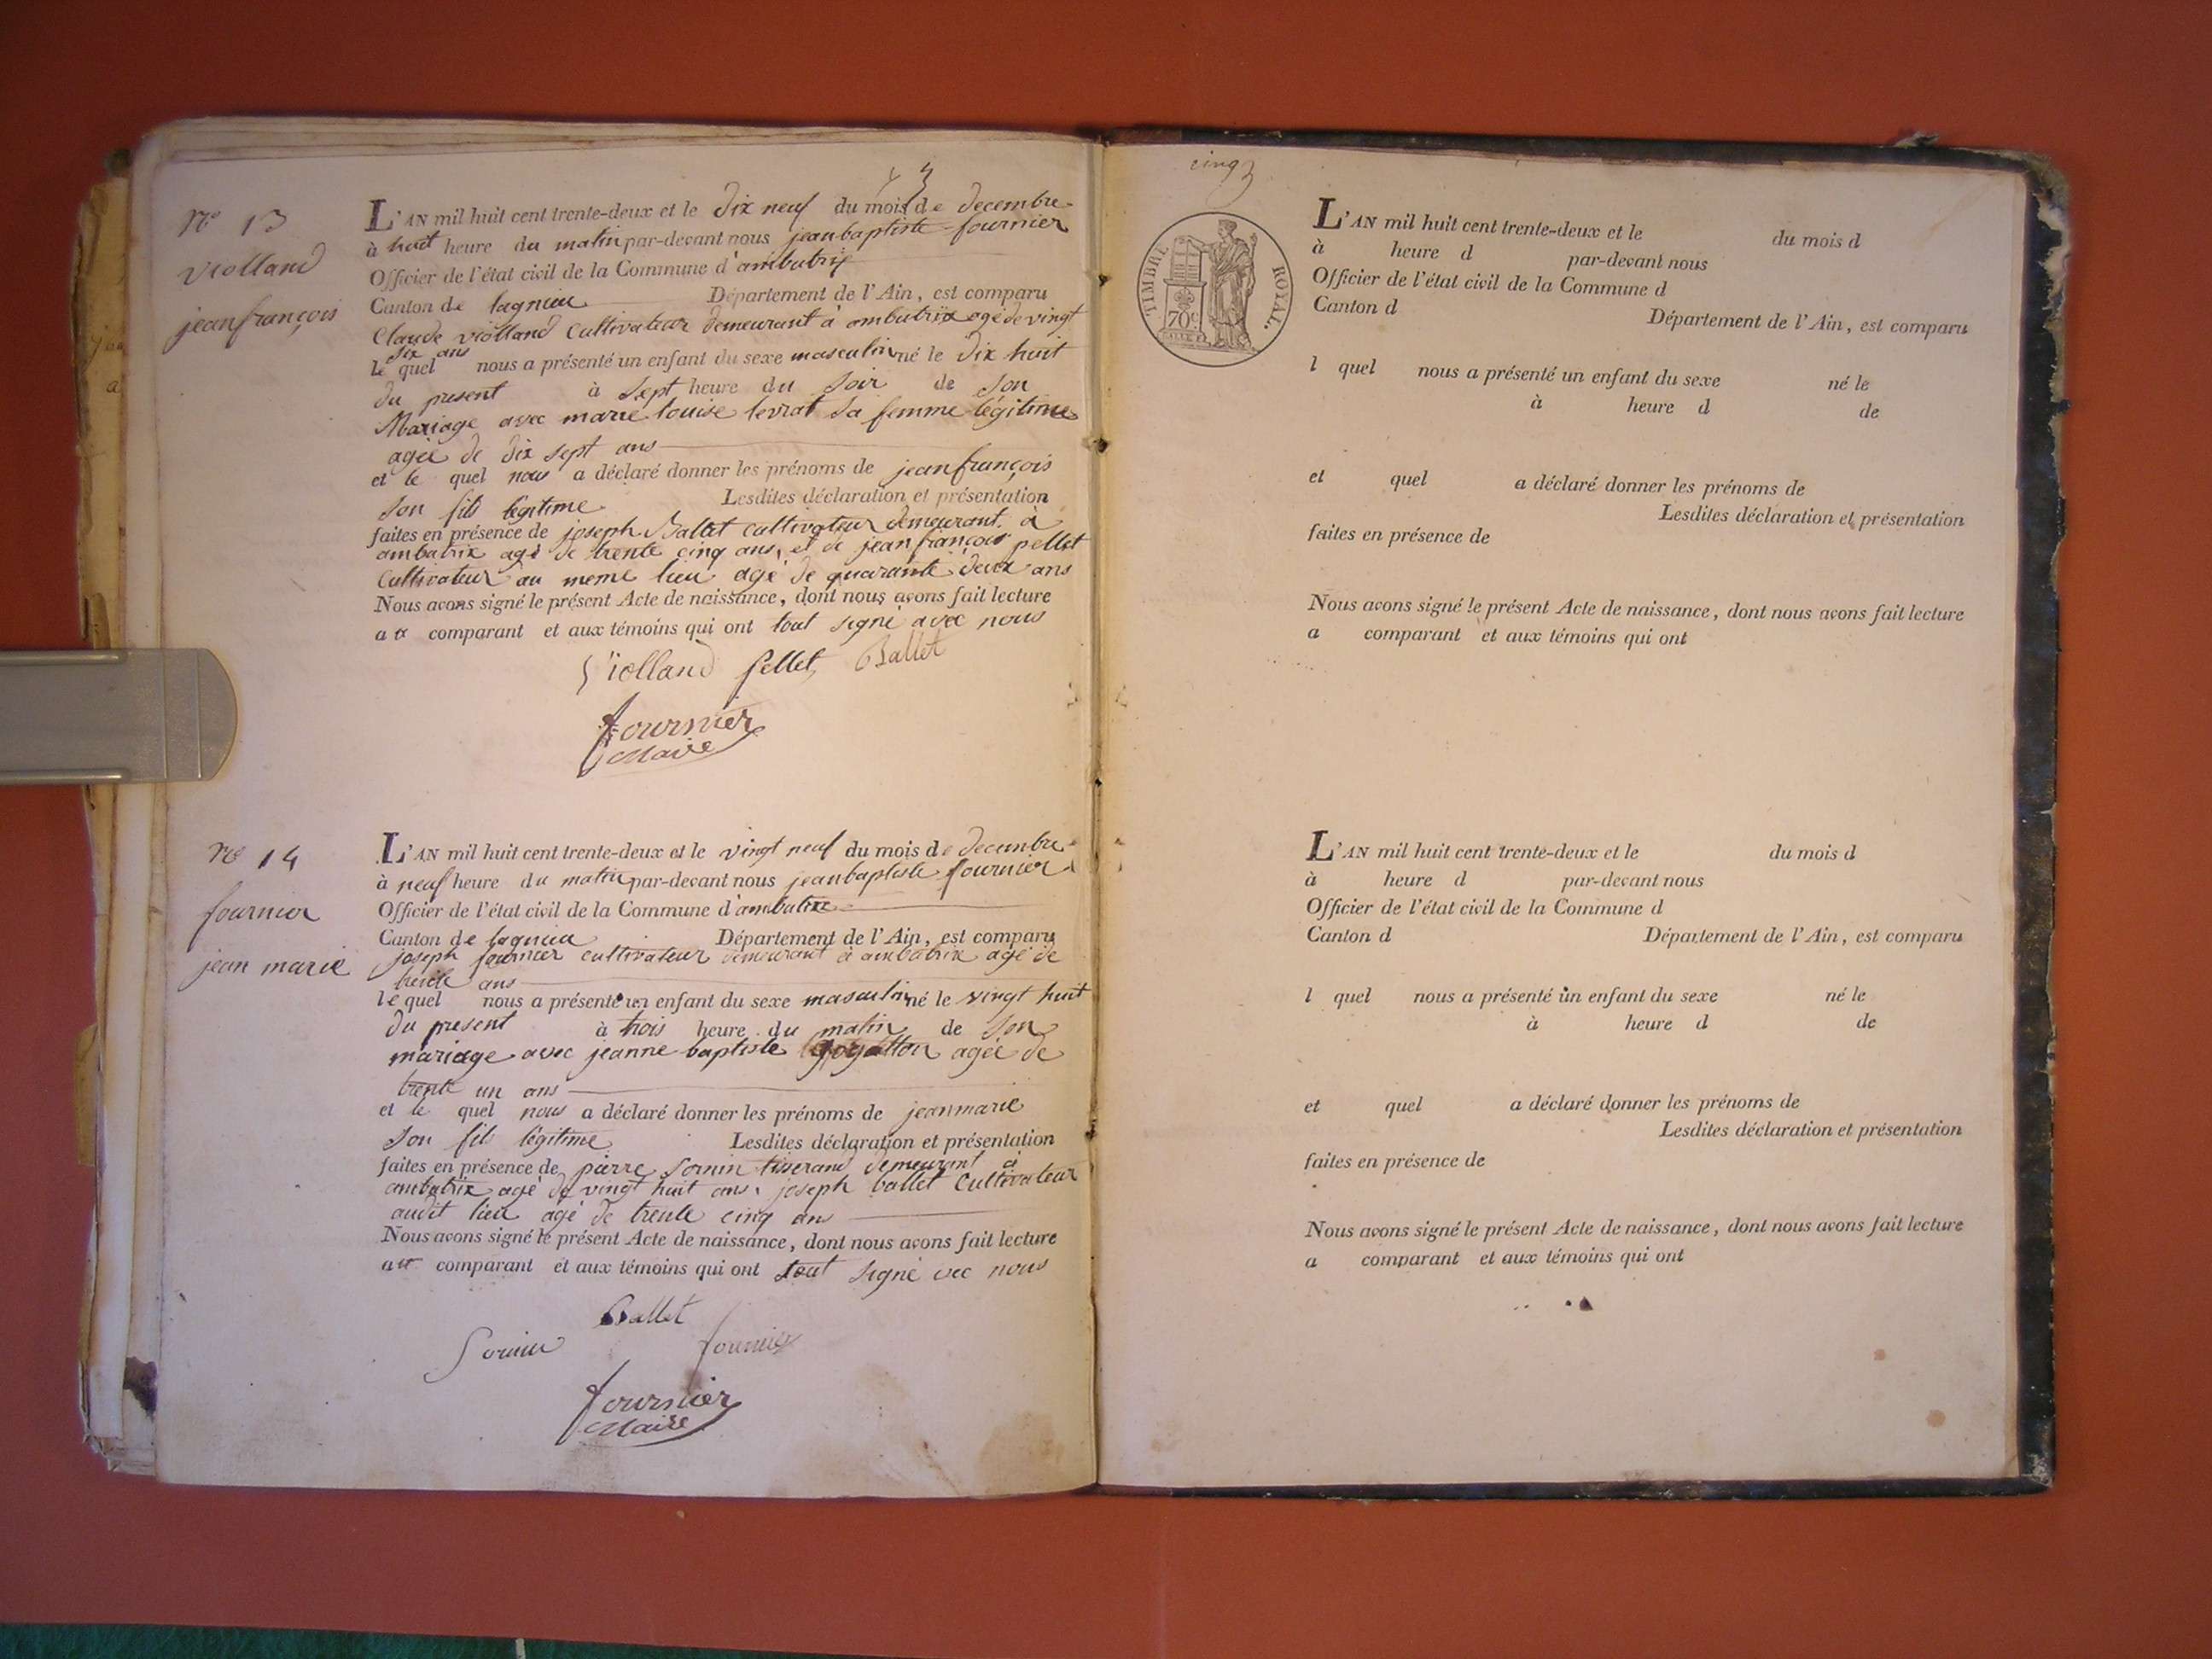 nº 13
violland
jean françois
L'AN mil huit cent trente-deux et le dix neuf du mois de decembre
à huit heure du matin par-devant nous jean baptiste fournier
Officier de l'état civil de la Commune d'ambutrix
Canton de lagnieu Département de l'Ain, est comparu
Claude violland Cultivateur demeurant à ambutrix agé de vingt
six ans
le quel nous a présenté un enfant du sexe masculin né le dix huit
du present à sept heure du soir de son
Mariage avec marie louise levrat sa femme légitime
agée de dix sept ans
et le quel nous a déclaré donner les prénoms de jean françois
son fils légitime Lesdites déclaration et présentation
faites en présence de joseph Ballet cultivateur demeurant à
ambutrix agé de trente cinq ans, et de jean françois pellet
Cultivateur au meme lieu agé de quarante deux ans
Nous avons signé le présent Acte de naissance, dont nous avons fait lecture
au comparant et aux témoins qui ont tout signé avec nous
Violland pellet Ballet
fournier
Maire
nº 14
fournier
jean marie
L'AN mil huit cent trente-deux et le vingt neuf du mois de decembre
à neuf heure du matin par-devant nous jean baptiste fournier
Officier de l'état civil de la Commune d'ambutrix
Canton de lagnieu Département de l'Ain, est comparu
joseph fournier cultivateur demeurant à ambutrix agé de
ans
le quel nous a présenté un enfant du sexe masculin né le vingt huit
du present à trois heure du matin de son
mariage avec jeanne baptiste agée de
trente un ans
et le quel nous a déclaré donner les prénoms de jean marie
son fils légitime Lesdites déclaration et présentation
faites en présence de pierre Sornin tiserand demeurant à
ambutrix agé de vingt huit ans, joseph ballet Cultivateur
audit lieu agé de trente cinq ans
Nous avons signé le présent Acte de naissance, dont nous avons fait lecture
au comparant et aux témoins qui ont tout signé vec nous
Ballet
Sornin fournier
fournier
Maire
cinq
TIMBRE ROYAL.
70c
L'AN mil huit cent trente-deux et le du mois d
à heure d par-devant nous
Officier de l'état civil de la Commune d
Canton d Département de l'Ain, est comparu
l quel nous a présenté un enfant du sexe né le
à heure d de
et quel a déclaré donner les prénoms de
Lesdites déclaration et présentation
faites en présence de
Nous avons signé le présent Acte de naissance, dont nous avons fait lecture
a comparant et aux témoins qui ont
L'AN mil huit cent trente-deux et le du mois d
à heure d par-devant nous
Officier de l'état civil de la Commune d
Canton d Département de l'Ain, est comparu
l quel nous a présenté un enfant du sexe né le
à heure d de
et quel a déclaré donner les prénoms de
Lesdites déclaration et présentation
faites en présence de
Nous avons signé le présent Acte de naissance, dont nous avons fait lecture
a comparant et aux témoins qui ont